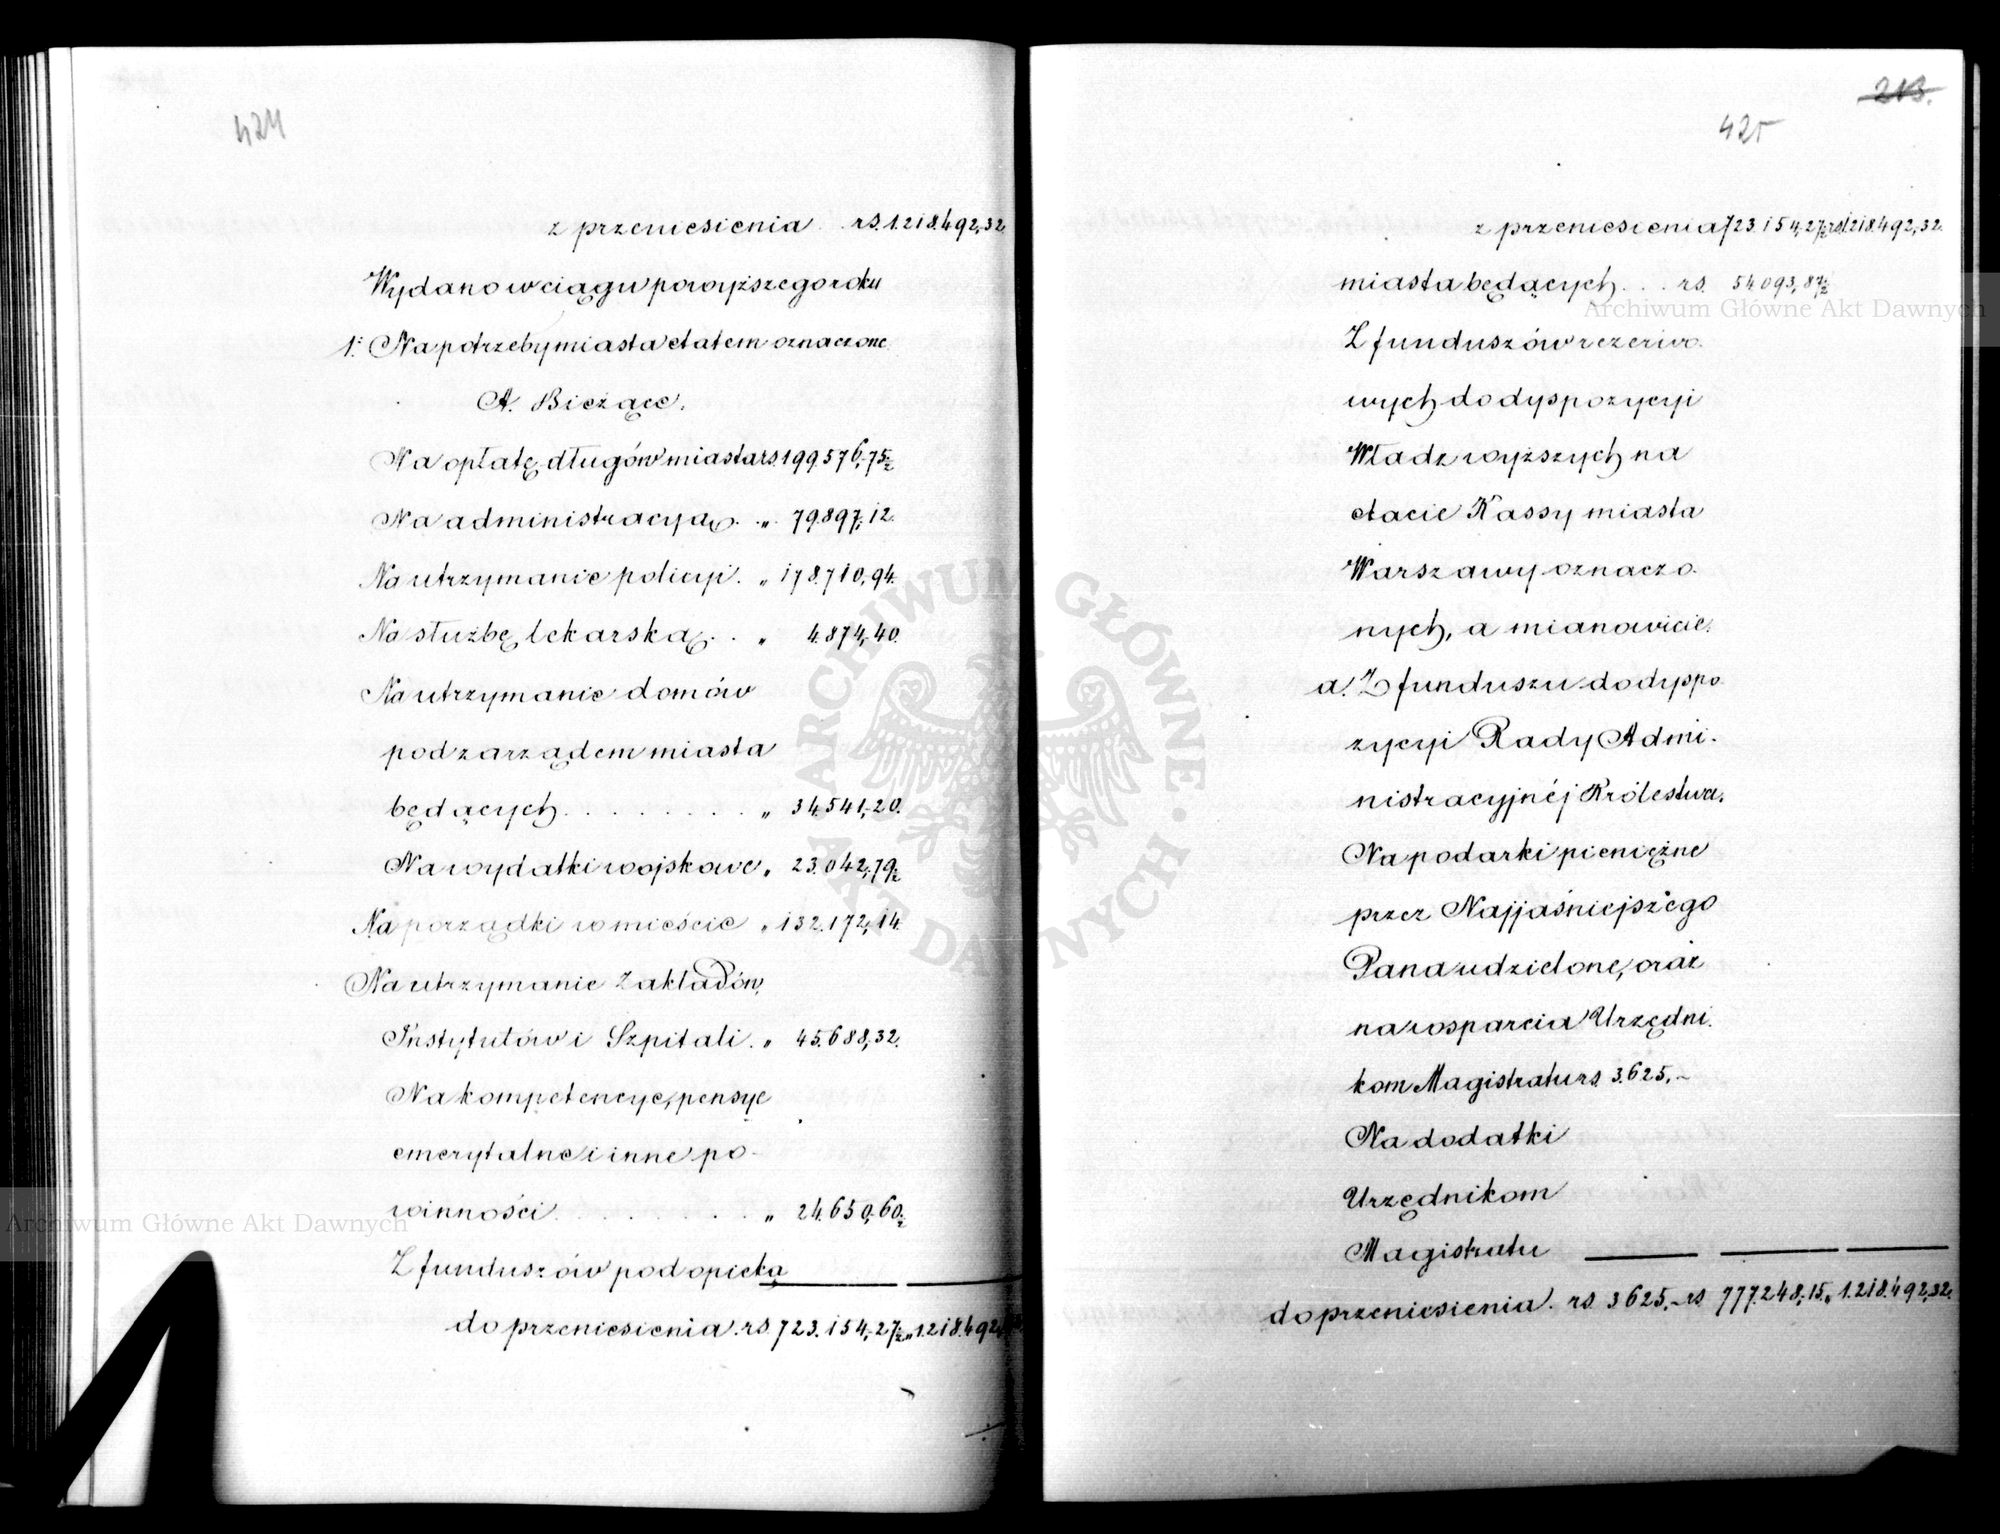 424
z przeniesienia . . rs. 1.218.492,32.
Wydano w ciągu powyższego roku
1: Na potrzeby miasta etatem oznaczone.
A. Bieżące.
Na opłatę długów miasta rs. 199.576,75½
Na administracyą . . „ 79.897,12.
Na utrzymanie policyi . „ 178.710,94.
Na służbę lekarską . . „ 4.874,40.
Na utrzymanie domów
pod zarządem miasta
będących . . . . . . . . „ 34.541,20.
Na wydatki wojskowe „ 23.042,79½
Na porządki w mieście „ 132.172,14.
Na utrzymanie Zakładów,
Instytutów i Szpitali . „ 45.688,32.
Na kompetencye, pensye
emerytalne i inne po-
winności . . . . . . . . „ 24.650,60½
Z funduszów pod opieką
do przeniesienia . rs. 723.154,27½ „ 1.218.492
213.
425
z przeniesienia 723.154,27½ rs. 1.218.492,32.
miasta będących . . . rs. 54.093,87½
Z funduszów rezerwo-
wych do dyspozycyi
Władz wyższych na
etacie Kassy miasta
Warszawy oznaczo-
nych, a mianowicie:
a. Z funduszu do dyspo-
zycyi Rady Admi-
nistracyjnéj Królestwa.
Na podarki pieniężne
przez Najjaśniejszego
Pana udzielone, oraz
na wsparcia Urzędni-
kom Magistratu rs. 3.625.-
Na dodatki
Urzędnikom
Magistratu
do przeniesienia . rs. 3625.- rs. 777.248,15 „ 1.218.492,32.
Archiwum Główne Akt Dawnych
Archiwum Główne Akt Dawnych
ARCHIWUM GŁÓWNE AKT DAWNYCH